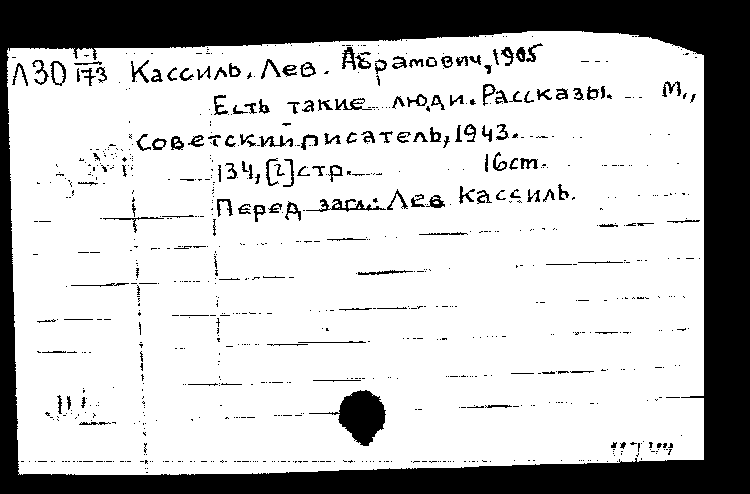 Л30 1-1/173 Кассиль, Лев. Абрамович, 1905
Есть такие люди. Рассказы. М.,
Советский писатель, 1943.
134, [2] стр. 16 ст.
Перед загл.: Лев Кассиль.